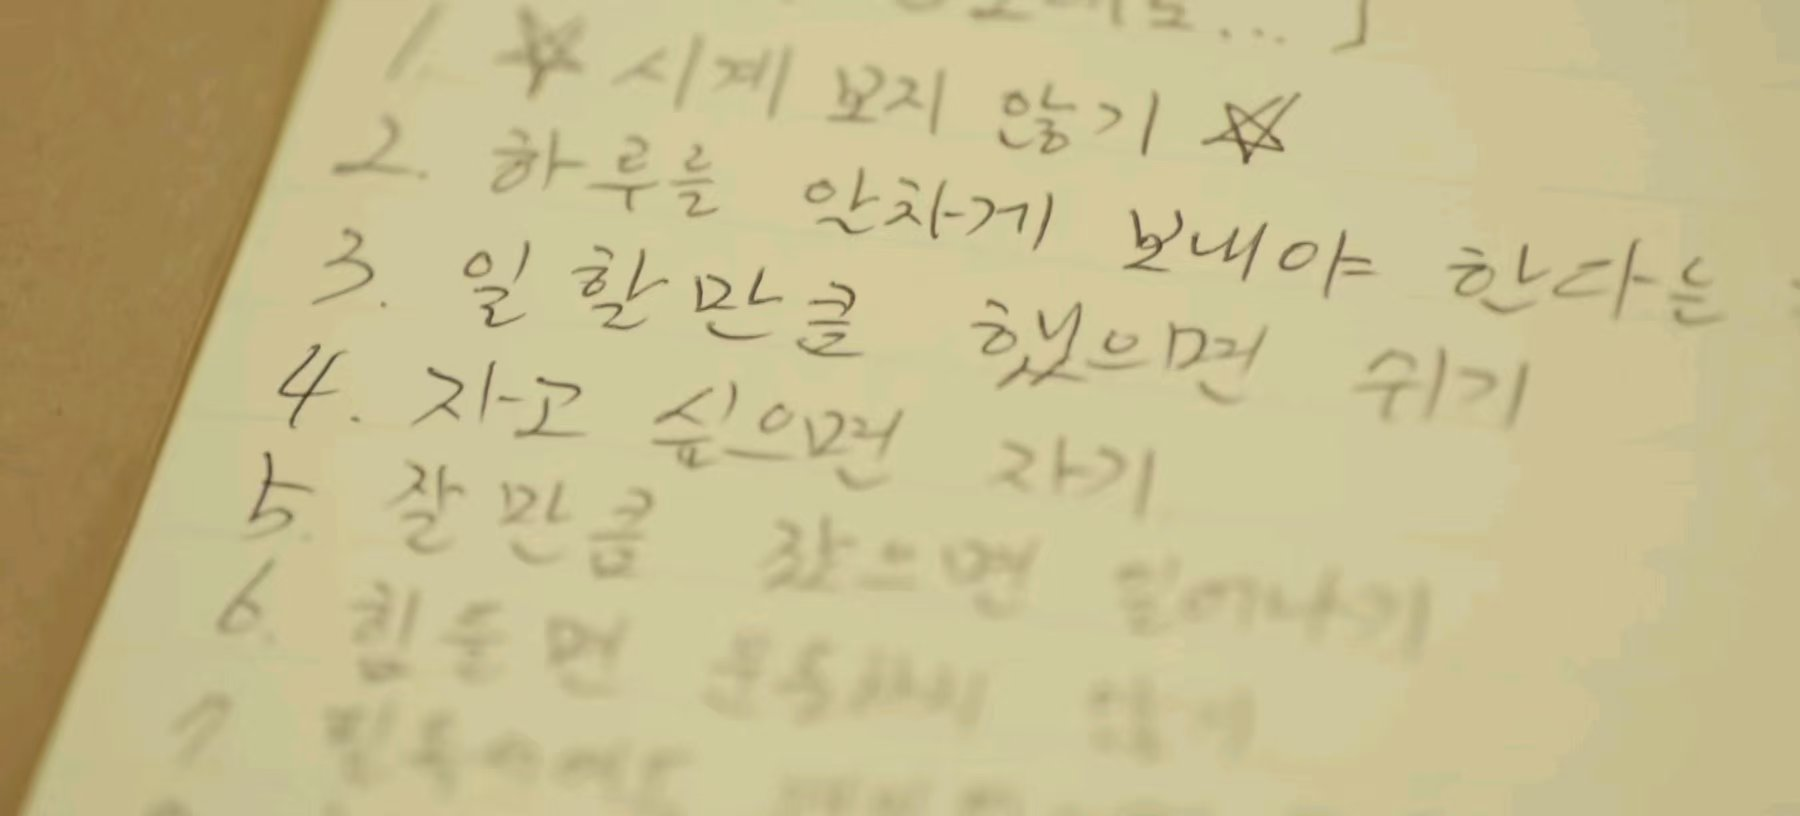 1. ☆ 시계 보지 않기 ☆
2. 하루를 알차게 보내야 한다는
3. 일 할 만큼 했으면 쉬기
4. 자고 싶으면 자기
5. 잘 만큼 잤으면 일어나기
6. 힘들면 운동하지 않기
7.